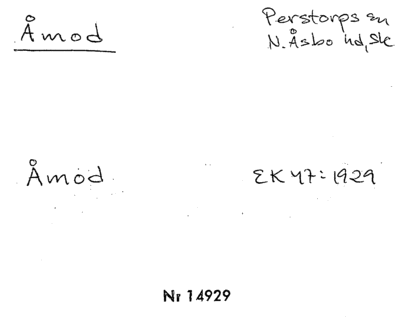 Åmod
Perstorps sn
N. Åsbo hd, Sk
Åmod
EK 47: 1929
Nr 14929